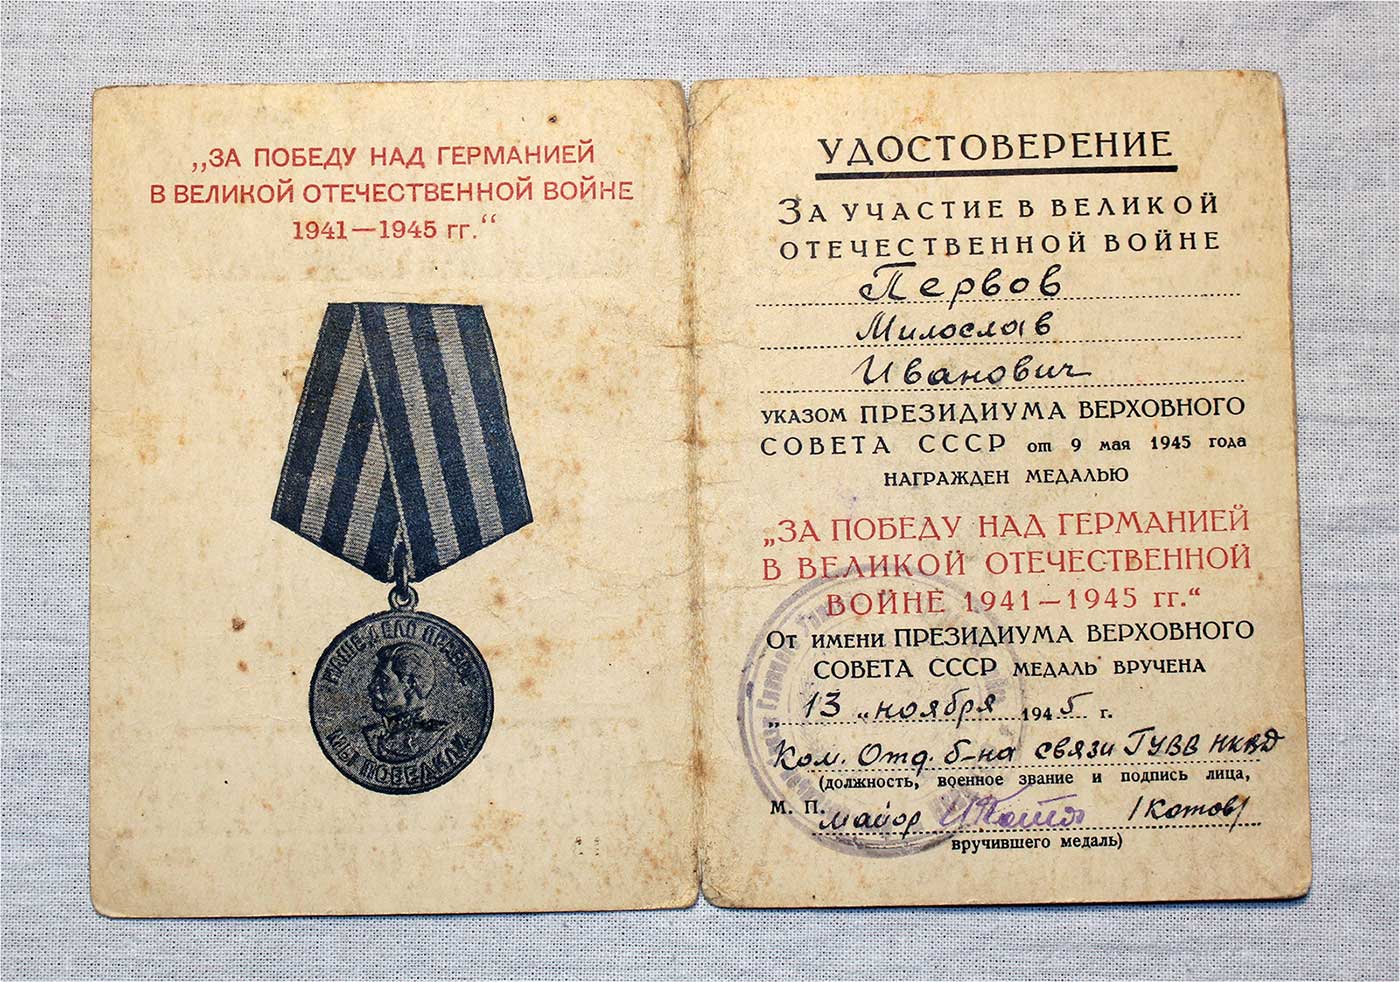 „ЗА ПОБЕДУ НАД ГЕРМАНИЕЙ
В ВЕЛИКОЙ ОТЕЧЕСТВЕННОЙ ВОЙНЕ
1941—1945 гг.“
НАШЕ ДЕЛО ПРАВОЕ
МЫ ПОБЕДИЛИ
УДОСТОВЕРЕНИЕ
ЗА УЧАСТИЕ В ВЕЛИКОЙ
ОТЕЧЕСТВЕННОЙ ВОЙНЕ
Первов
Милослав
Иванович
УКАЗОМ ПРЕЗИДИУМА ВЕРХОВНОГО
СОВЕТА СССР от 9 мая 1945 года
НАГРАЖДЕН МЕДАЛЬЮ
„ЗА ПОБЕДУ НАД ГЕРМАНИЕЙ
В ВЕЛИКОЙ ОТЕЧЕСТВЕННОЙ
ВОЙНЕ 1941—1945 гг.“
ОТ ИМЕНИ ПРЕЗИДИУМА ВЕРХОВНОГО
СОВЕТА СССР МЕДАЛЬ ВРУЧЕНА
„13„ ноября 1945 г.
Ком. Отд. б-на связи ГУВВ НКВД
(должность, военное звание и подпись лица,
М. П. майор /Котов/
вручившего медаль)